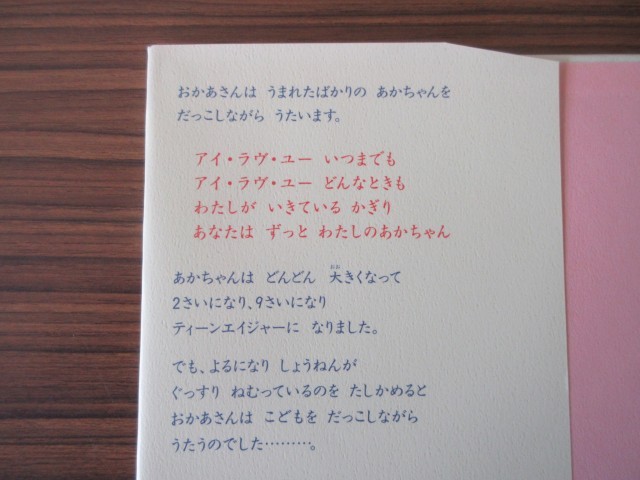 おかあさんは うまれたばかりの あかちゃんを
だっこしながら うたいます。
アイ・ラヴ・ユー いつまでも
アイ・ラヴ・ユー どんなときも
わたしが いきている かぎり
あなたは ずっと わたしのあかちゃん
あかちゃんは どんどん 大きくなって
2さいになり、9さいになり
ティーンエイジャーに なりました。
でも、よるになり しょうねんが
ぐっすり ねむっているのを たしかめると
おかあさんは こどもを だっこしながら
うたうのでした………。